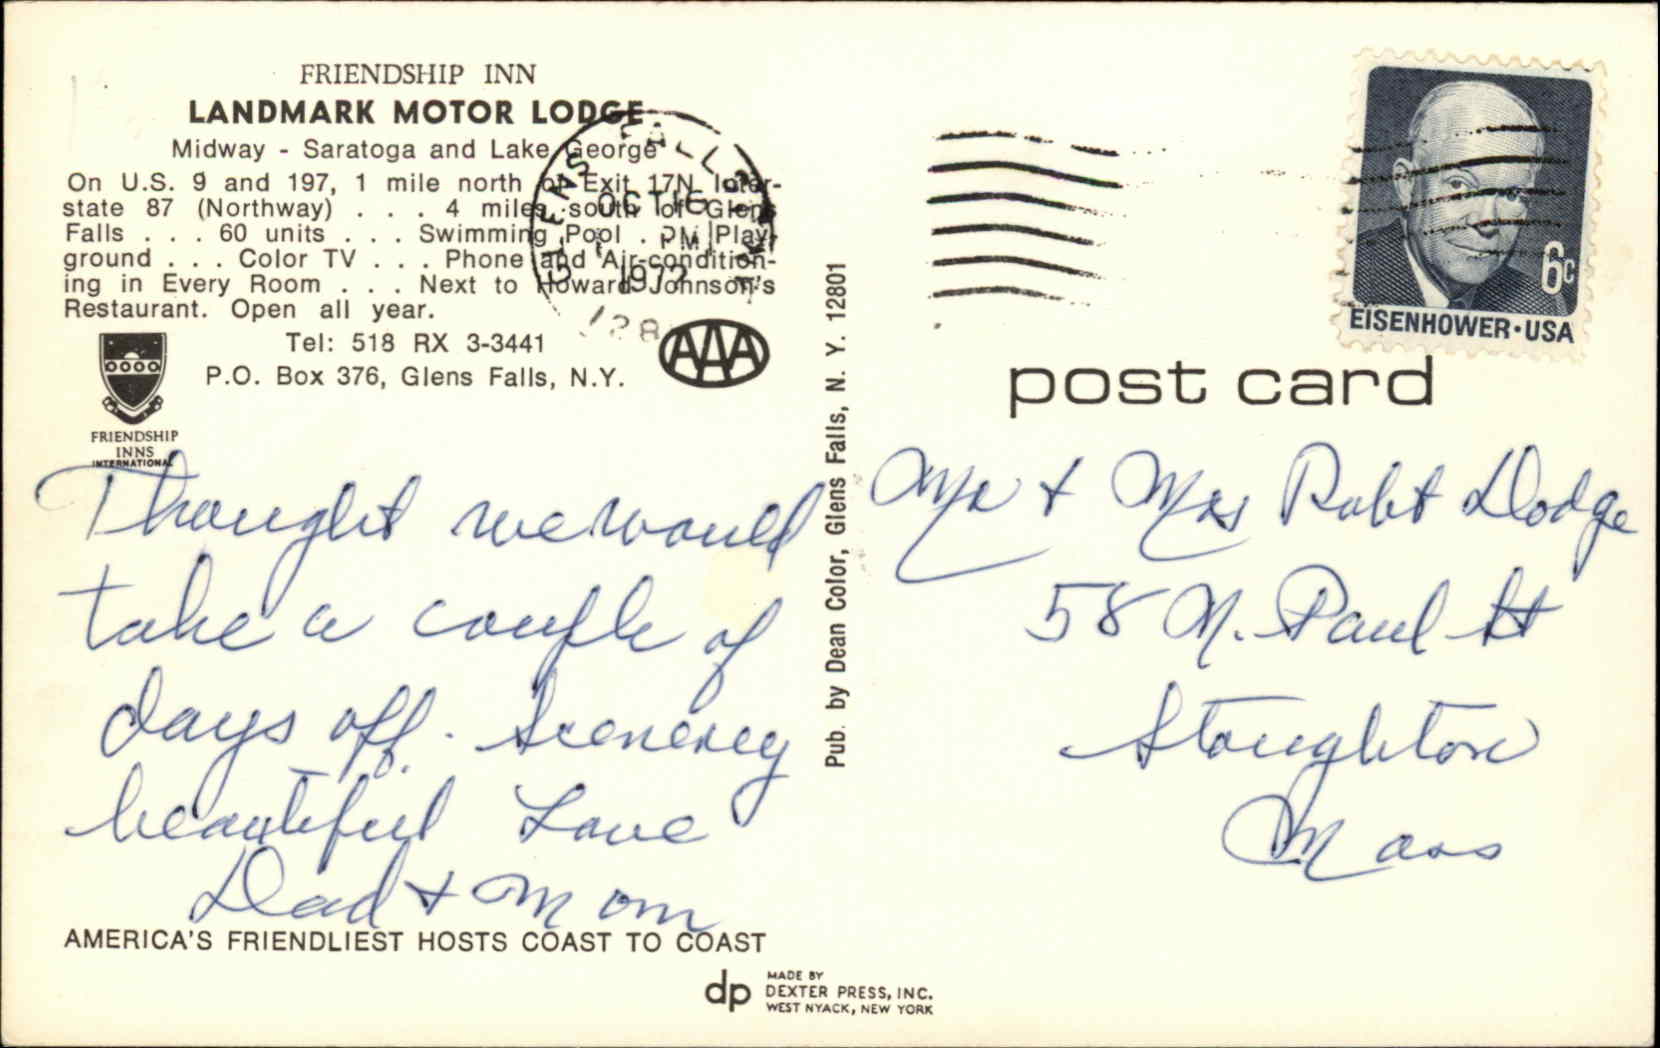 FRIENDSHIP INN
LANDMARK MOTOR LODGE
Midway - Saratoga and Lake George
On U.S. 9 and 197, 1 mile north of Exit 17N Inter-
state 87 (Northway) . . . 4 miles south of Glens
Falls . . . 60 units . . . Swimming Pool . . . Play-
ground . . . Color TV . . . Phone and Air-condition-
ing in Every Room . . . Next to Howard Johnson's
Restaurant. Open all year.
Tel: 518 RX 3-3441
P.O. Box 376, Glens Falls, N.Y.
AAA
FRIENDSHIP
INNS
INTERNATIONAL
GLENS FALLS
OCT 16
PM
1972
128
Thought we would
take a couple of
days off. Scenerey
beautiful Love
Dad + Mom
AMERICA'S FRIENDLIEST HOSTS COAST TO COAST
dp
MADE BY
DEXTER PRESS, INC.
WEST NYACK, NEW YORK
Pub. by Dean Color, Glens Falls, N. Y. 12801
6c
EISENHOWER·USA
post card
Mr + Mrs Robt Dodge
58 N. Paul St
Stoughton
Mass